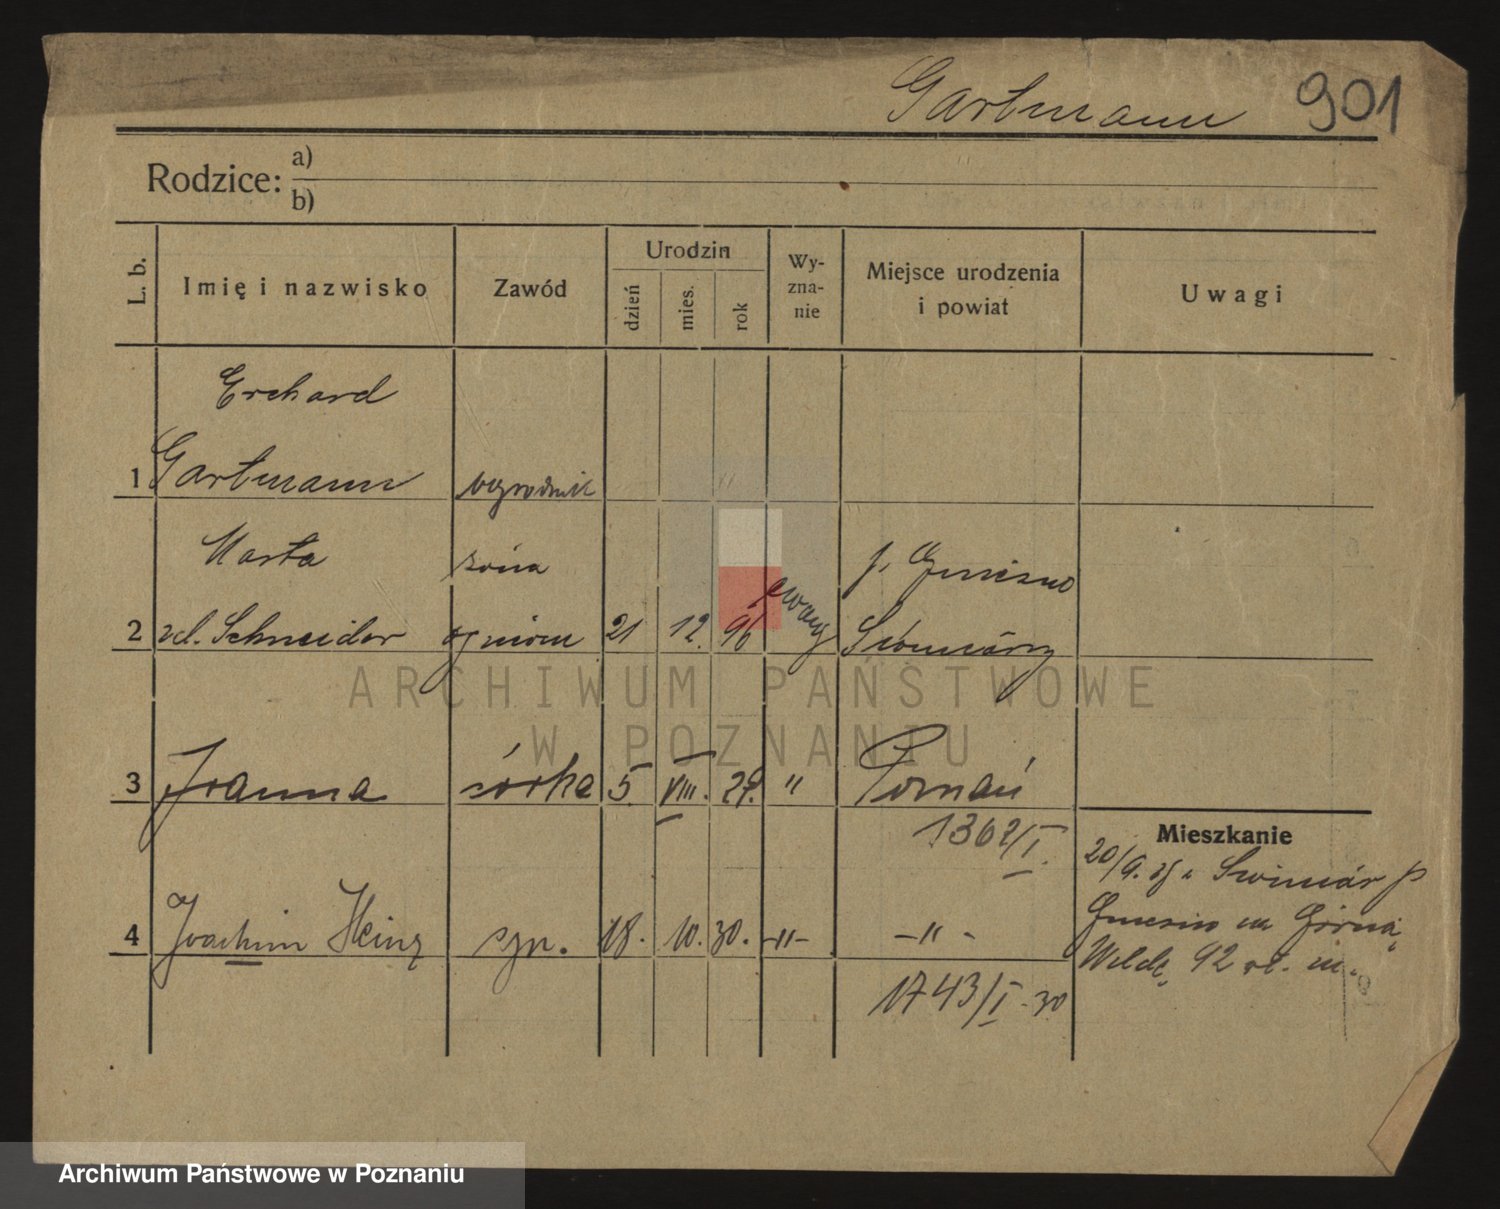 Gartmann 901
Rodzice: a)
b)
L. b. Imię i nazwisko Zawód Urodzin dzień mies. rok Wy-zna-nie Miejsce urodzenia i powiat Uwagi
Erchard
1 Gartmann ogrodnik
Marta żona p. Gniezno
2 zd. Schneider ogniom 21 12. 96 ewang
ARCHIWUM PAŃSTWOWE
W POZNANIU
3 Joanna córka 5. VIII. 29. " Poznań
1362/I.
Mieszkanie
20/9. Swiniár p
4 Joachim Heinz syn. 18. 10. 30. -"- -"-
Gniezno na Górną
Wildę 92
1743/I-30
Archiwum Państwowe w Poznaniu